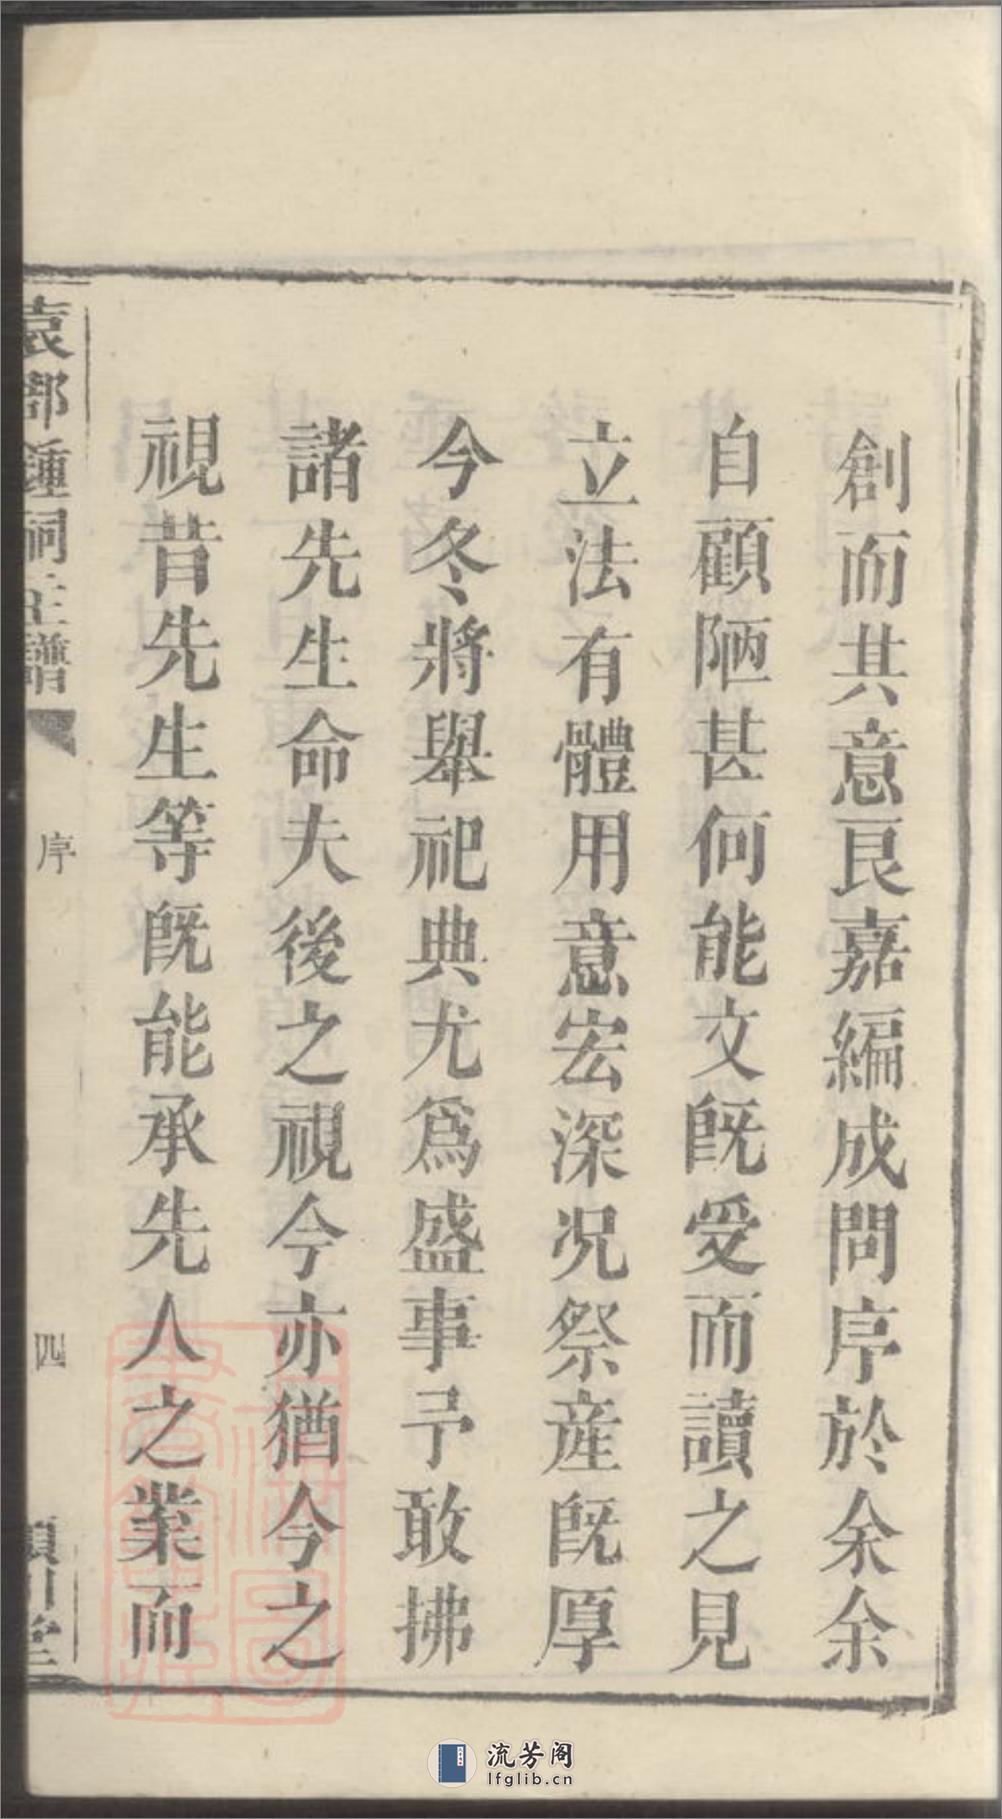 創而其意良嘉編成問序於余余
自顧陋甚何能文既受而讀之見
立法有體用意宏深况祭産既厚
今冬將舉祀典尤爲盛事予敢拂
諸先生命夫後之視今亦猶今之
視昔先生等既能承先人之業而
袁郡鍾祠主譜
序
四
潁川堂
流芳阁
lfglib.cn